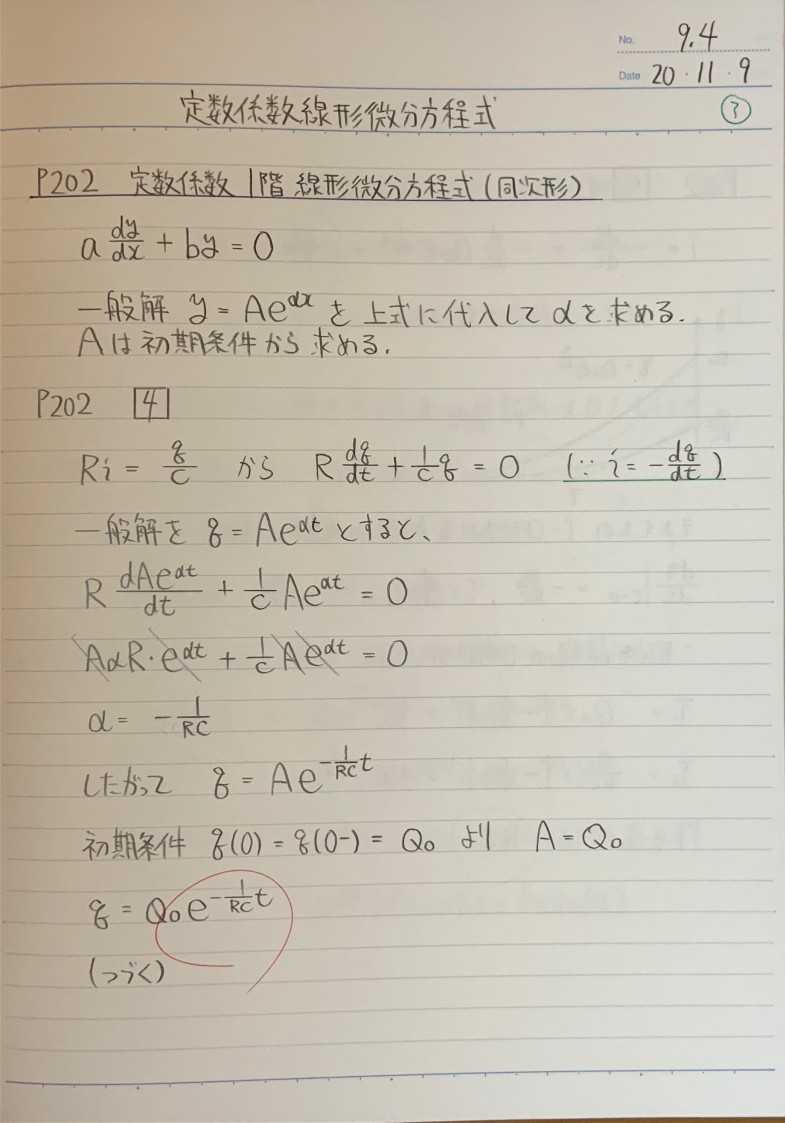 No. 9.4
Date 20・11・9
定数係数線形微分方程式 ③
P202 定数係数 1階 線形微分方程式(同次形)
a dy/dx + by = 0
一般解 y = Ae^αx を 上式に代入して αを求める.
Aは初期条件から求める.
P202 4
Ri = q/C から R dq/dt + 1/C q = 0 (∵ i = -dq/dt)
一般解を q = Ae^αt とすると、
R dAe^αt/dt + 1/C Ae^αt = 0
AαR・e^αt + 1/C Ae^αt = 0
α = -1/RC
したがって q = Ae^-1/RC t
初期条件 q(0) = q(0-) = Q₀ より A = Q₀
q = Q₀e^-1/RC t
(つづく)